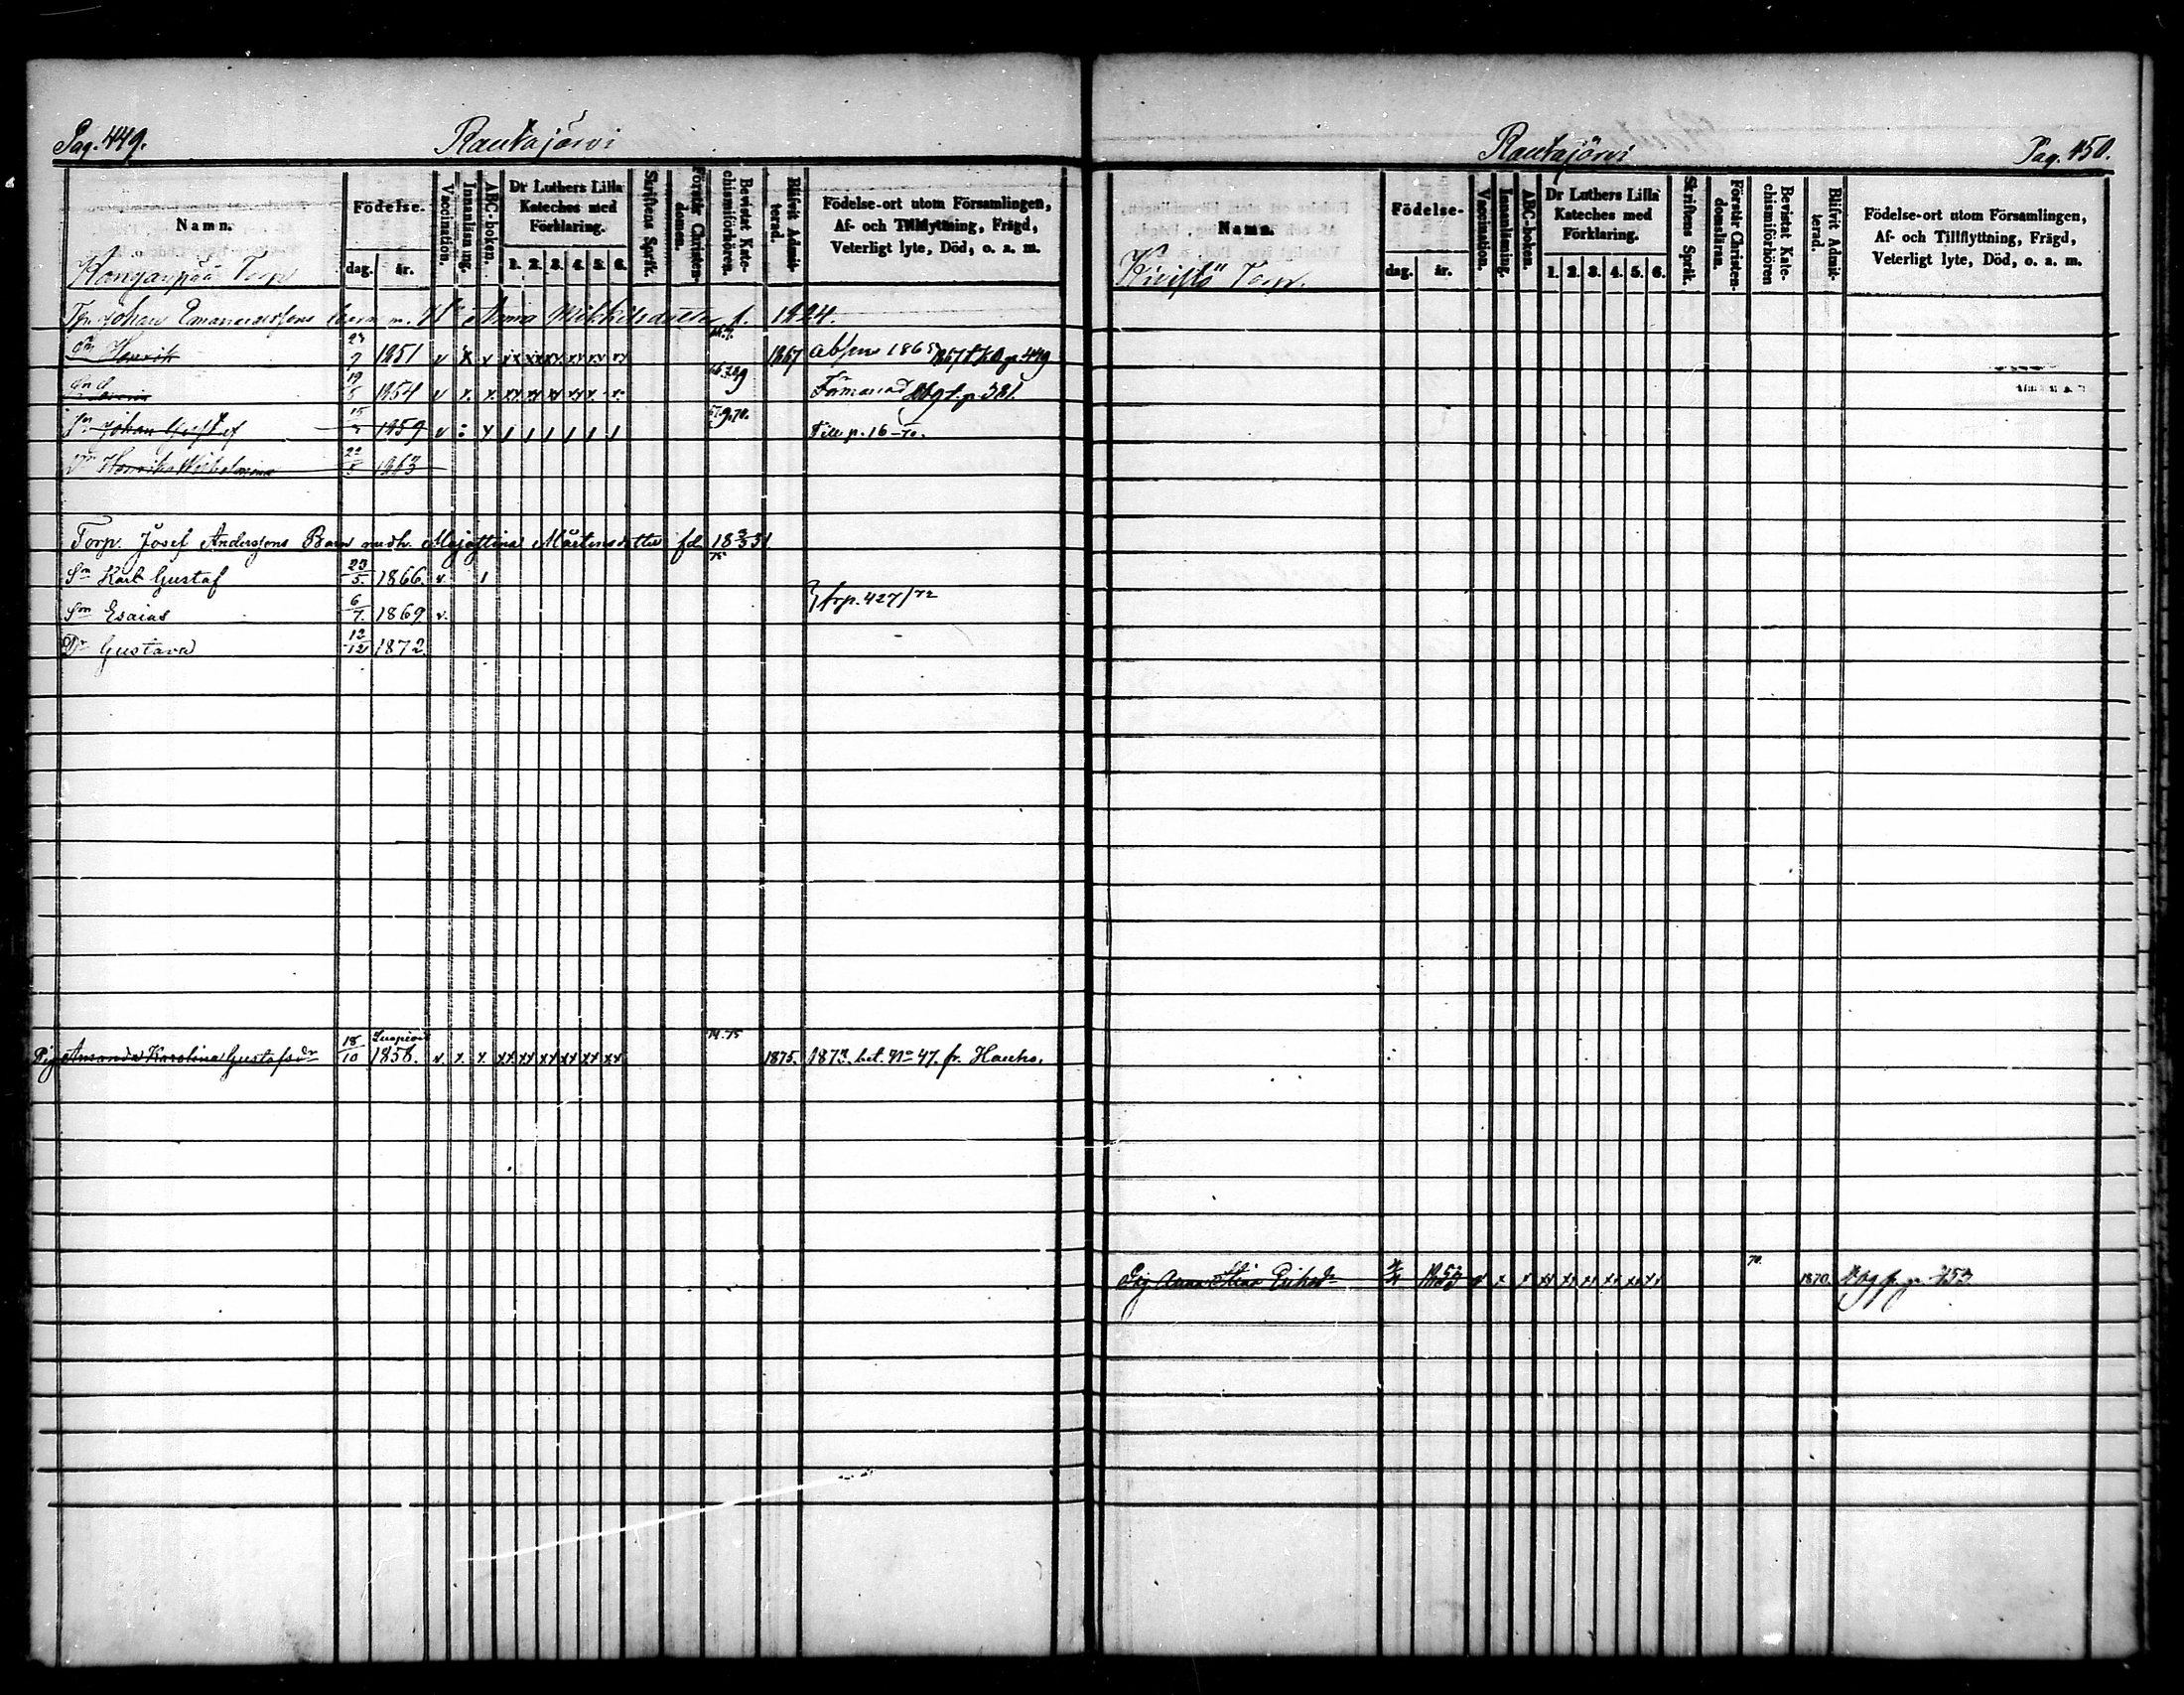 Pag. 449.
Rautajärvi
Namn.
Födelse.
dag.
år.
Vaccination.
Innanläsning.
ABC-boken.
Dr Luthers Lilla
Kateches med
Förklaring.
1. 2. 3. 4. 5. 6.
Skriftens Språk.
Förstår Christen-
domen.
Bevistat Kate-
chismiförhören.
Blifvit Admit-
terad.
Födelse-ort utom Församlingen,
Af- och Tillflyttning, Frägd,
Veterligt lyte, Död, o. a. m.
Torp
Johan Emanuelssons barn m. H. Anna Mikkelsdotter f. 1824.
Sn Henrik 1851 v x v 1867
19 1854 v x. x. p. 381.
Sn Johan Gustaf 15 1859 v Till p. 16-70.
Dr Henrika Wilhelmina 22 1863
Torp. Josef Anderssons Barn med h. Majastina Mårtensdotter fd 18 31
Sn Karl Gustaf 23/5 1866. v. 1
Sn Esaias 6/7. 1869 v. } frp. 427/72
Dr Gustava 12/12 1872.
Pig Amanda Karolina Gustafsdr 18/10 Luopiois 1858. v. x. x. xx xx xx xx xx xx 74.75 1875. 1873. bet. No 47. fr. Hauho.
Rautajärvi
Pag. 450.
Namn.
Födelse-
dag.
år.
Vaccination.
Innanläsning.
ABC-boken.
Dr Luthers Lilla
Kateches med
Förklaring.
1. 2. 3. 4. 5. 6.
Skriftens Språk.
Förstår Christen-
domsläran.
Bevistat Kate-
chismiförhören
Blifvit Admit-
terad.
Födelse-ort utom Församlingen,
Af- och Tillflyttning, Frägd,
Veterligt lyte, Död, o. a. m.
Kivistö Torp.
Pig Anna Stina 70. 1870. p. 453